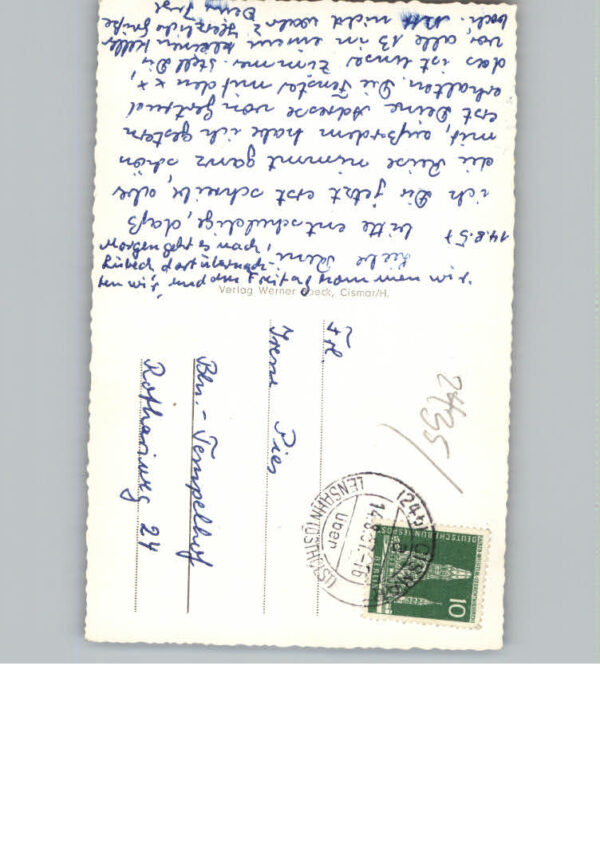 14.8.57
Liebe Reni,
bitte entschuldige, daß
ich Dir jetzt erst schreibe, aber
die Reise nimmt ganz schön
mit, außerdem habe ich gestern
erst Deine Adresse von Gertrud
erhalten. Die Fenster mit den x x
das ist unser Zimmer. Stell Dir
vor, alle 13 in einem kleinen
nicht wahr? Herzliche Grüße
Deine Inge
Morgen geht es nach
Lübeck dort übernach-
ten wir, und am Freitag kommen wir
Verlag Werner Beeck, Cismar/H.
Frl.
Irene Pies
Bln.-Tempelhof
Rothariweg 24
2435
(24b) CISMAR
über
LENSAHN (OSTHOLST)
14.8.57
DEUTSCHE BUNDESPOST
BERLIN
10